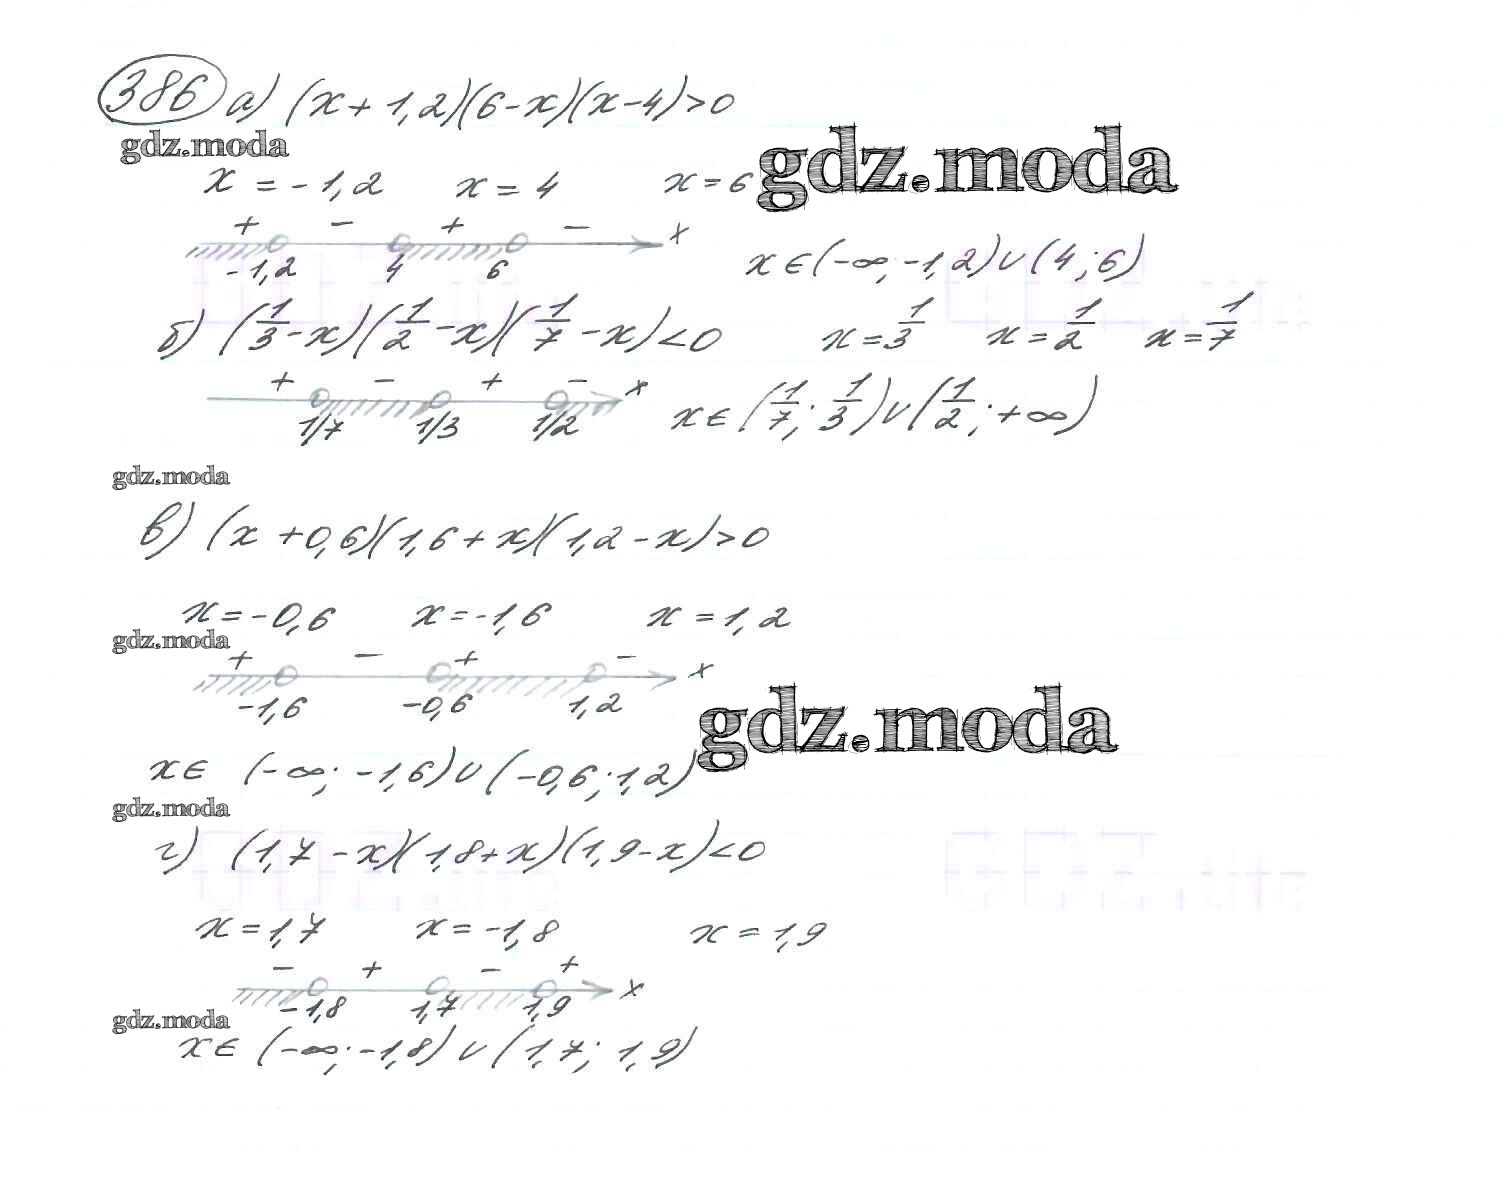 386 а) (x + 1,2)(6 - x)(x - 4) > 0
gdz.moda
gdz.moda
x = -1,2 x = 4 x = 6
+ - + - x
-1,2 4 6
x ∈ (-∞; -1,2) ∪ (4; 6)
б) (1/3 - x)(1/2 - x)(1/7 - x) < 0 x = 1/3 x = 1/2 x = 1/7
+ - + - x
1/7 1/3 1/2
x ∈ (1/7; 1/3) ∪ (1/2; +∞)
gdz.moda
в) (x + 0,6)(1,6 + x)(1,2 - x) > 0
x = -0,6 x = -1,6 x = 1,2
gdz.moda
+ - + - x
-1,6 -0,6 1,2
gdz.moda
x ∈ (-∞; -1,6) ∪ (-0,6; 1,2)
gdz.moda
г) (1,7 - x)(1,8 + x)(1,9 - x) < 0
x = 1,7 x = -1,8 x = 1,9
- + - + x
-1,8 1,7 1,9
gdz.moda
x ∈ (-∞; -1,8) ∪ (1,7; 1,9)